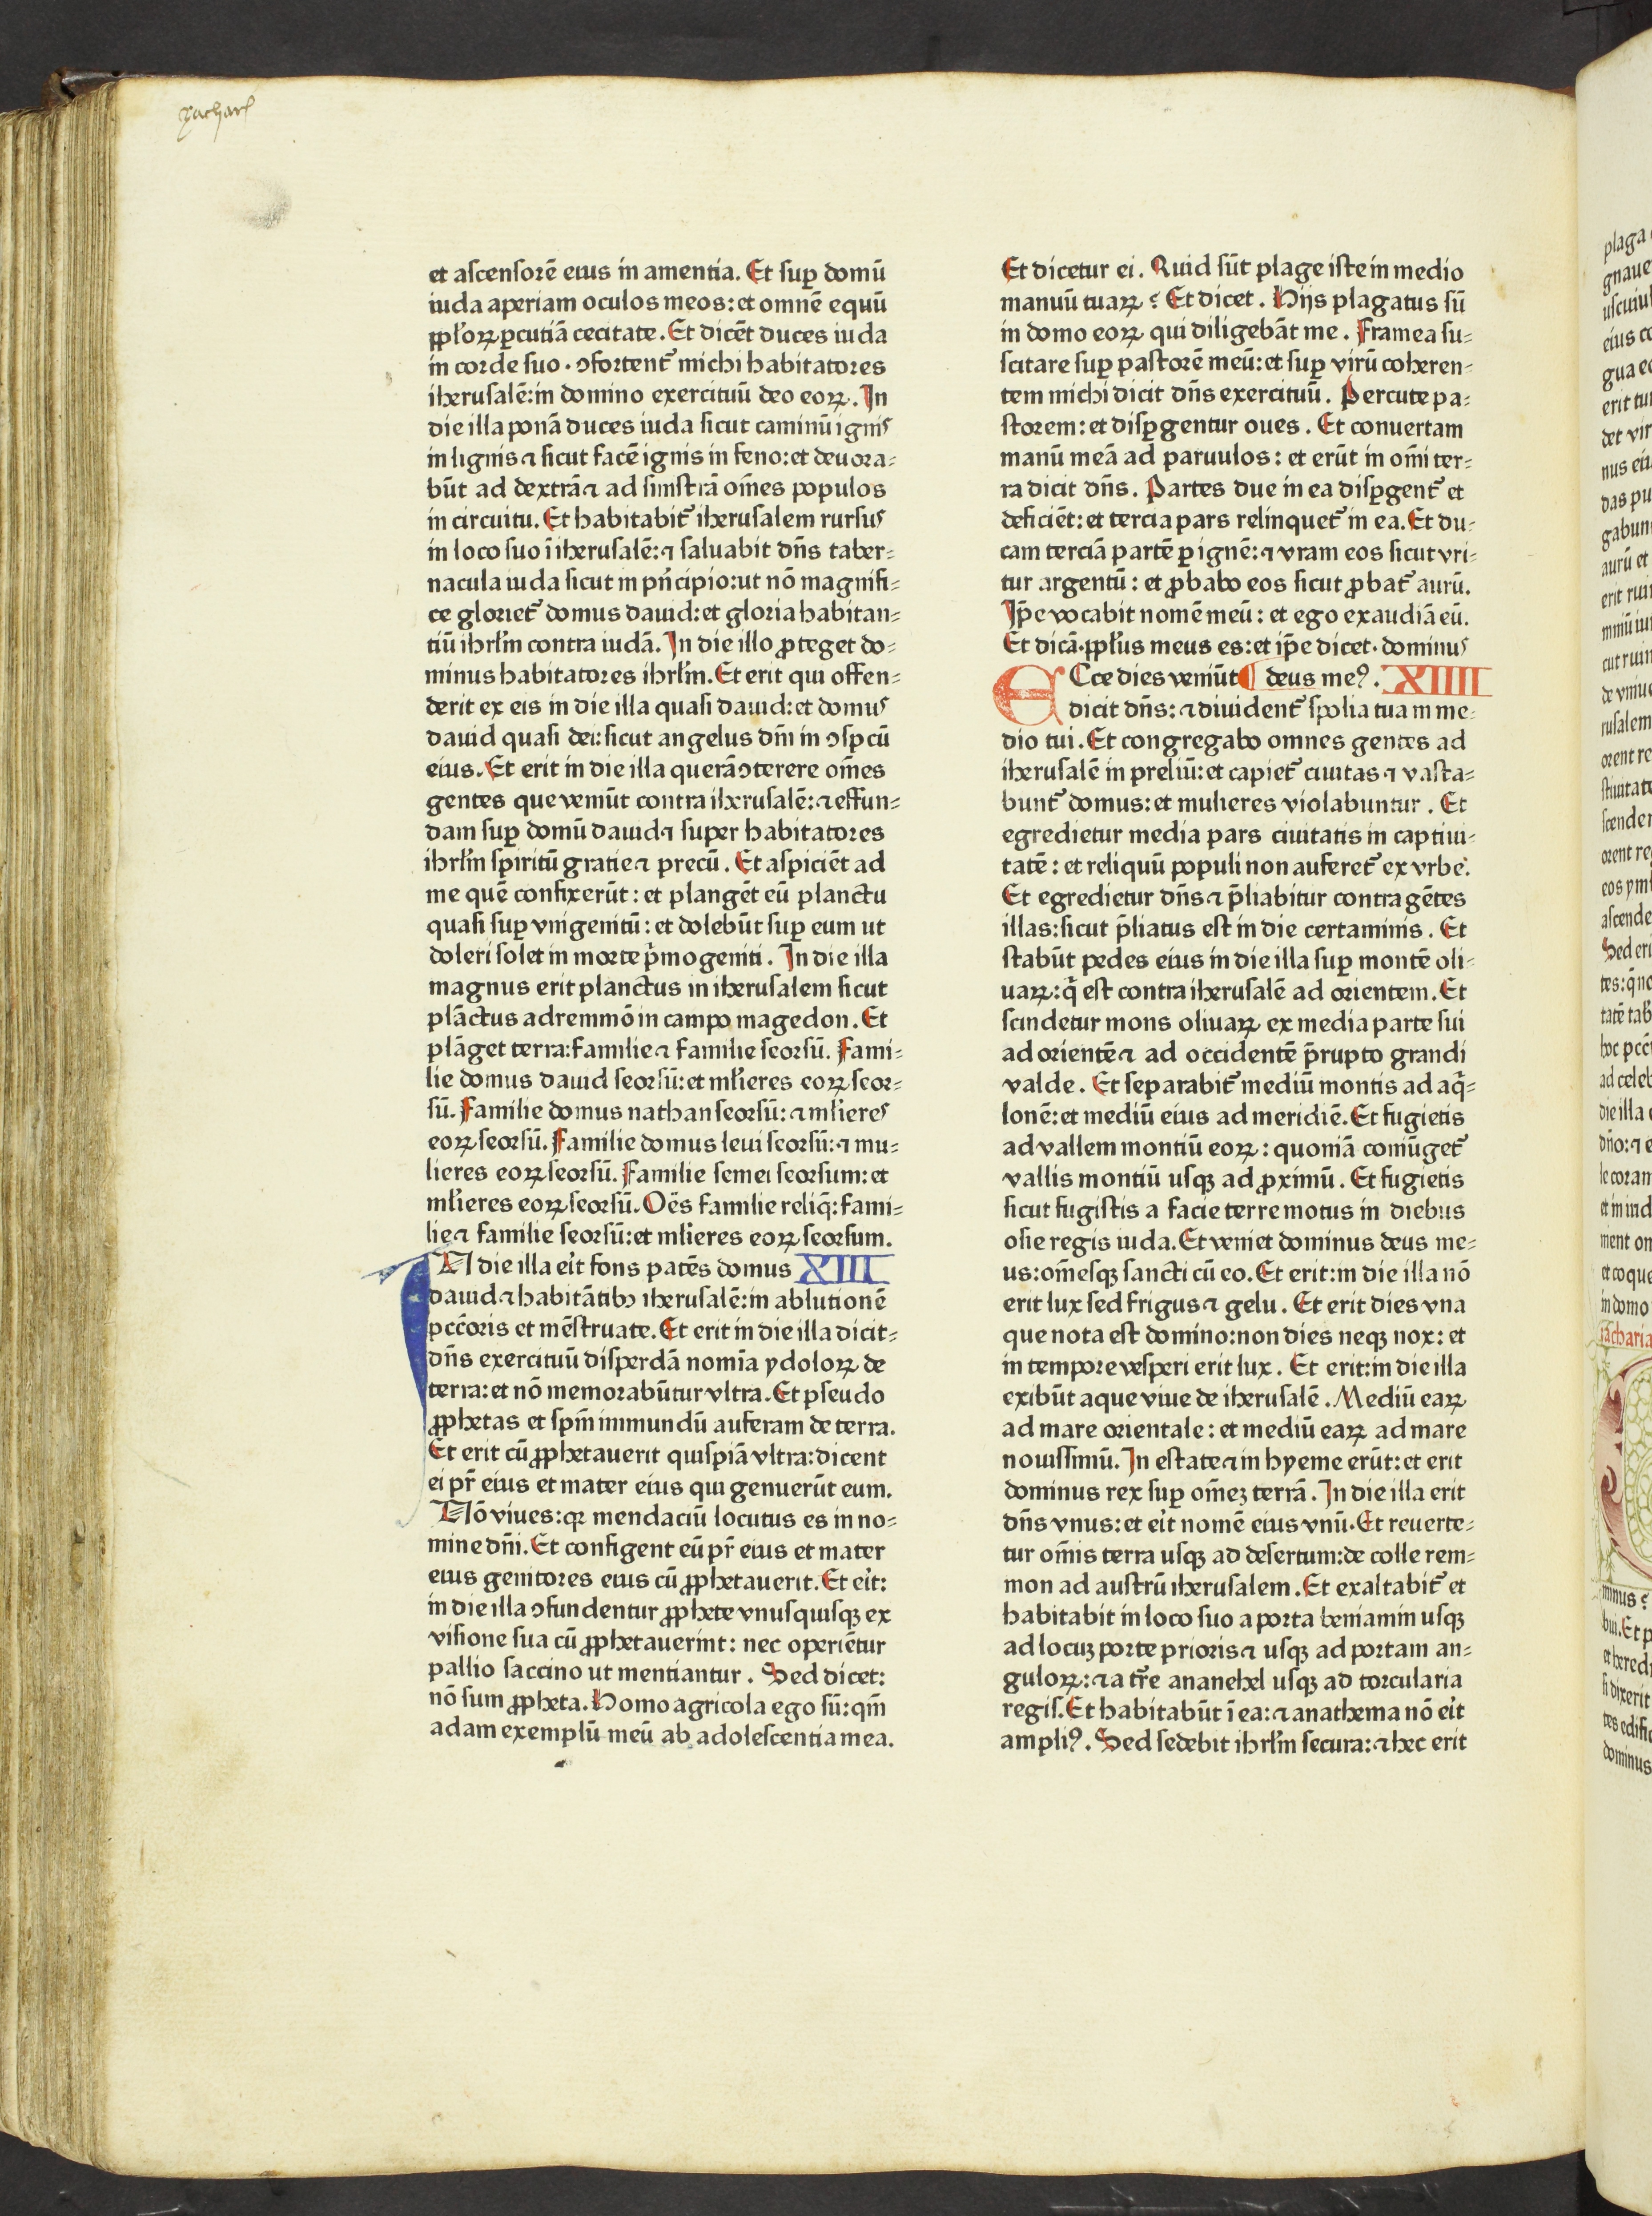 zachar
et ascensorē eius in amentia. Et suꝑ domū
iuda aperiam oculos meos: et omnē equū
ꝓpl'oꝝ ꝑcutiā cecitate. Et dicēt duces iuda
in corde suo. ↄfortent᷑ michi habitatores
iherusalē: in domino exercituū deo eoꝝ. In
die illa ponā duces iuda sicut caminū ignis
in lignis ⁊ sicut facē ignis in feno: et deuora=
būt ad dextrā ⁊ ad sinistrā om̄es populos
in circuitu. Et habitabit᷑ iherusalem rursus
in loco suo ī iherusalē: ⁊ saluabit dn̄s taber=
nacula iuda sicut in pn̄cipio: ut nō magnifi=
ce gloriet᷑ domus dauid: et gloria habitan=
tiū ihrl'm contra iudā. In die illo ꝓteget do=
minus habitatores ihrl'm. Et erit qui offen=
derit ex eis in die illa quasi dauid: et domus
dauid quasi dei: sicut angelus dn̄i in ↄspcū
eius. Et erit in die illa querā ↄterere om̄es
gentes que veniūt contra iherusalē: ⁊ effun=
dam suꝑ domū dauid ⁊ super habitatores
ihrl'm spiritū gratie ⁊ precū. Et aspiciēt ad
me quē confixerūt: et plangēt eū planctu
quasi suꝑ vnigenitū: et dolebūt suꝑ eum ut
doleri solet in morte pͥmogeniti. In die illa
magnus erit planctus in iherusalem sicut
plāctus adremmō in campo magedon. Et
plāget terra: familie ⁊ familie seorsū. Fami=
lie domus dauid seorsū: et ml'ieres eoꝝ seor=
sū. Familie domus nathan seorsū: ⁊ ml'ieres
eoꝝ seorsū. Familie domus leui seorsū: ⁊ mu=
lieres eoꝝ seorsū. Familie semei seorsum: et
ml'ieres eoꝝ seorsū. Oēs familie reliq̄: fami=
lie ⁊ familie seorsū: et ml'ieres eoꝝ seorsum.
IN die illa eit fons patēs domus XIII
dauid ⁊ habitātibꝫ iherusalē: in ablutionē
pcc̄oris et mēstruate. Et erit in die illa dicit=
dn̄s exercituū disperdā nomīa ydoloꝝ de
terra: et nō memorabūtur vltra. Et pseudo
ꝓphetas et spm̄ immundū auferam de terra.
Et erit cū ꝓphetauerit quispiā vltra: dicent
ei pr̄ eius et mater eius qui genuerūt eum.
Nō viues: qꝛ mendaciū locutus es in no=
mine dn̄i. Et configent eū pr̄ eius et mater
eius genitores eius cū ꝓphetauerit. Et eit:
in die illa ↄfundentur ꝓphete vnusquisqꝫ ex
visione sua cū ꝓphetauerint: nec operiētur
pallio saccino ut mentiantur. Sed dicet:
nō sum ꝓpheta. Homo agricola ego sū: qm̄
adam exemplū meū ab adolescentia mea.
Et dicetur ei. Quid sūt plage iste in medio
manuū tuaꝝ? Et dicet. Hijs plagatus sū
in domo eoꝝ qui diligebāt me. Framea su=
scitare suꝑ pastorē meū: et suꝑ virū coheren=
tem michi dicit dn̄s exercituū. Percute pa=
storem: et disꝑgentur oues. Et conuertam
manū meā ad paruulos: et erūt in om̄i ter=
ra dicit dn̄s. Partes due in ea disꝑgent᷑ et
deficiēt: et tercia pars relinquet᷑ in ea. Et du=
cam terciā partē ꝑ ignē: ⁊ vram eos sicut vri=
tur argentū: et ꝓbabo eos sicut ꝓbat᷑ aurū.
Ip̄e vocabit nomē meū: et ego exaudiā eū.
Et dicā. ꝓpl'us meus es: et ip̄e dicet. dominus
ECce dies veniūt ¶ deus meꝰ. XIIII
dicit dn̄s: ⁊ diuident᷑ spolia tua in me=
dio tui. Et congregabo omnes gentes ad
iherusalē in preliū: et capiet᷑ ciuitas ⁊ vasta=
bunt᷑ domus: et mulieres violabuntur. Et
egredietur media pars ciuitatis in captiui=
tatē: et reliquū populi non auferet᷑ ex vrbe.
Et egredietur dn̄s ⁊ p̄liabitur contra gētes
illas: sicut p̄liatus est in die certaminis. Et
stabūt pedes eius in die illa suꝑ montē oli=
uaꝝ: q̄ est contra iherusalē ad orientem. Et
scindetur mons oliuaꝝ ex media parte sui
ad orientē ⁊ ad occidentē p̄rupto grandi
valde. Et separabit᷑ mediū montis ad aq̄=
lonē: et mediū eius ad meridiē. Et fugietis
ad vallem montiū eoꝝ: quoniā coniūget᷑
vallis montiū usqꝫ ad ꝓximū. Et fugietis
sicut fugistis a facie terremotus in diebus
osie regis iuda. Et veniet dominus deus me=
us: om̄esqꝫ sancti cū eo. Et erit: in die illa nō
erit lux sed frigus ⁊ gelu. Et erit dies vna
que nota est domino: non dies neqꝫ nox: et
in tempore vesperi erit lux. Et erit: in die illa
exibūt aque viue de iherusalē. Mediū eaꝝ
ad mare orientale: et mediū eaꝝ ad mare
nouissimū. In estate ⁊ in hyeme erūt: et erit
dominus rex suꝑ om̄eꝫ terrā. In die illa erit
dn̄s vnus: et eit nomē eius vnū. Et reuerte=
tur om̄is terra usqꝫ ad desertum: de colle rem=
mon ad austrū iherusalem. Et exaltabit᷑ et
habitabit in loco suo a porta beniamin usqꝫ
ad locuꝫ porte prioris ⁊ usqꝫ ad portam an=
guloꝝ: ⁊ a tr̄re ananehel usqꝫ ad torcularia
regis. Et habitabūt ī ea: ⁊ anathema nō eit
ampliꝰ. Sed sedebit ihrl'm secura: ⁊ hec erit